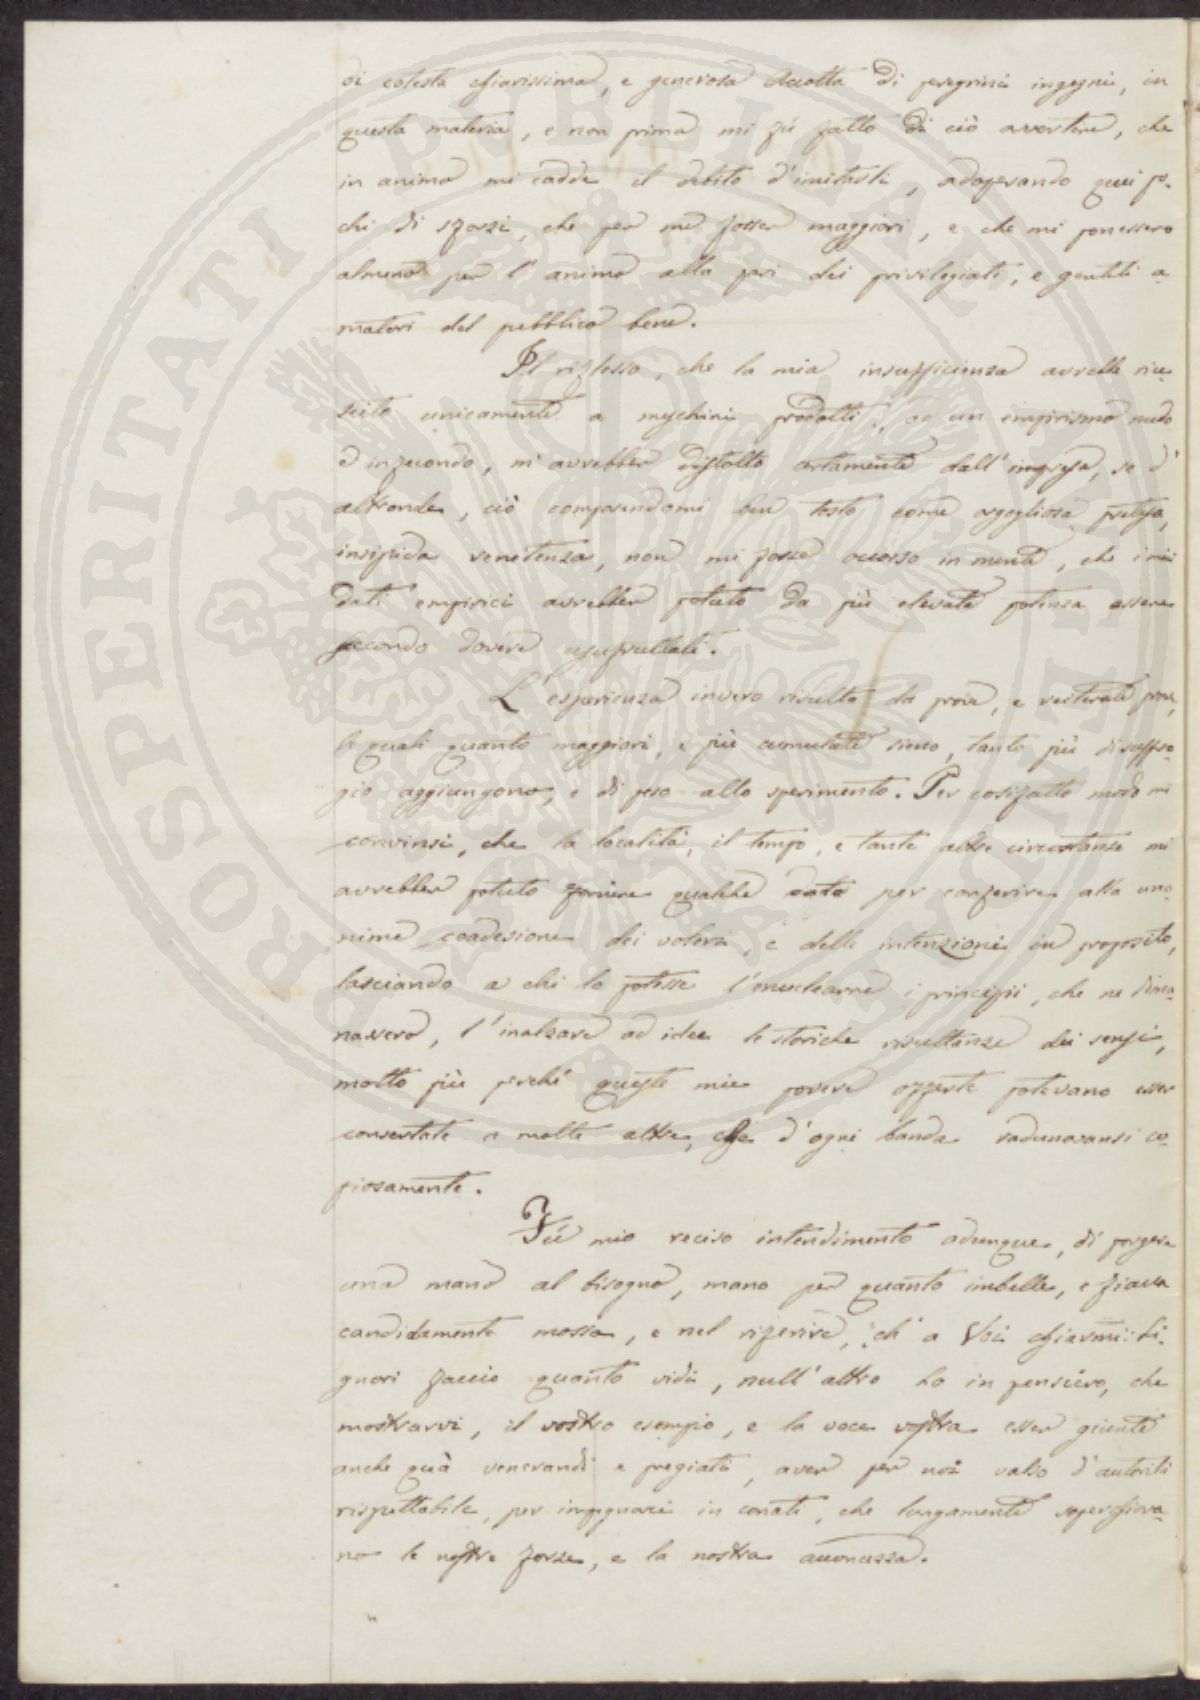 di cotesta chiarissima, e generosa Accolta di peregrini ingegni, in
questa materia, e non prima mi fu fatto di ciò avvertire, che
in animo mi cadde il debito d'imitarli, adoperando quei po-
chi di sforzi, che per me fosser maggiori, e che mi ponessero
almeno per l'animo alla pari dei privilegiati, e gentili a-
matori del pubblico bene.
Il riflesso, che la mia insufficienza avrebbe riu-
scito unicamente a meschini prodotti, ad un empirismo nudo
ed infecondo, m'avrebber distolto certamente dall'impresa, se d'
altronde, ciò comparendomi ben tosto come orgogliosa pretesa,
insipida renitenza, non mi fosse occorso in mente, che i miei
dati empirici avrebber potuto da più elevata potenza essere
secondo dovere usufruttati.
L'esperienza invero risulta da prove, e reiterate prove,
le quali quanto maggiori, e più cumulate sieno, tanto più di suffra-
gio aggiungono, e di peso allo sperimento. Per cosifatto modo mi
convinsi, che la località, il tempo, e tante altre circostanze mi
avrebber potuto fornire qualche dato per conferire alla una-
nime coadesione dei voleri, e delle intenzioni in proposito,
lasciando a chi lo potesse l'enuclearne i principii, che ne dima-
nassero, l'inalzare ad idee le storiche risultanze dei sensi,
molto più perché queste mie povere offerte potevano esser
consertate a molte altre, che d'ogni banda radunavansi co-
piosamente.
Fù mio reciso intendimento adunque, di porgere
una mano al bisogno, mano per quanto imbelle, e fiacca
candidamente mossa, e nel riferire, ch'a Voi chiarmi: Si-
gnori faccio quanto vidi, null'altro ho in pensiero, che
mostrarvi, il vostro esempio, e la voce vostra esser giunti
anche quà venerandi e pregiati, aver per noi valso d'autorità
rispettabile, per impegnarci in conati, che largamente soperchiava-
no le nostre forze, e la nostra acconcezza.